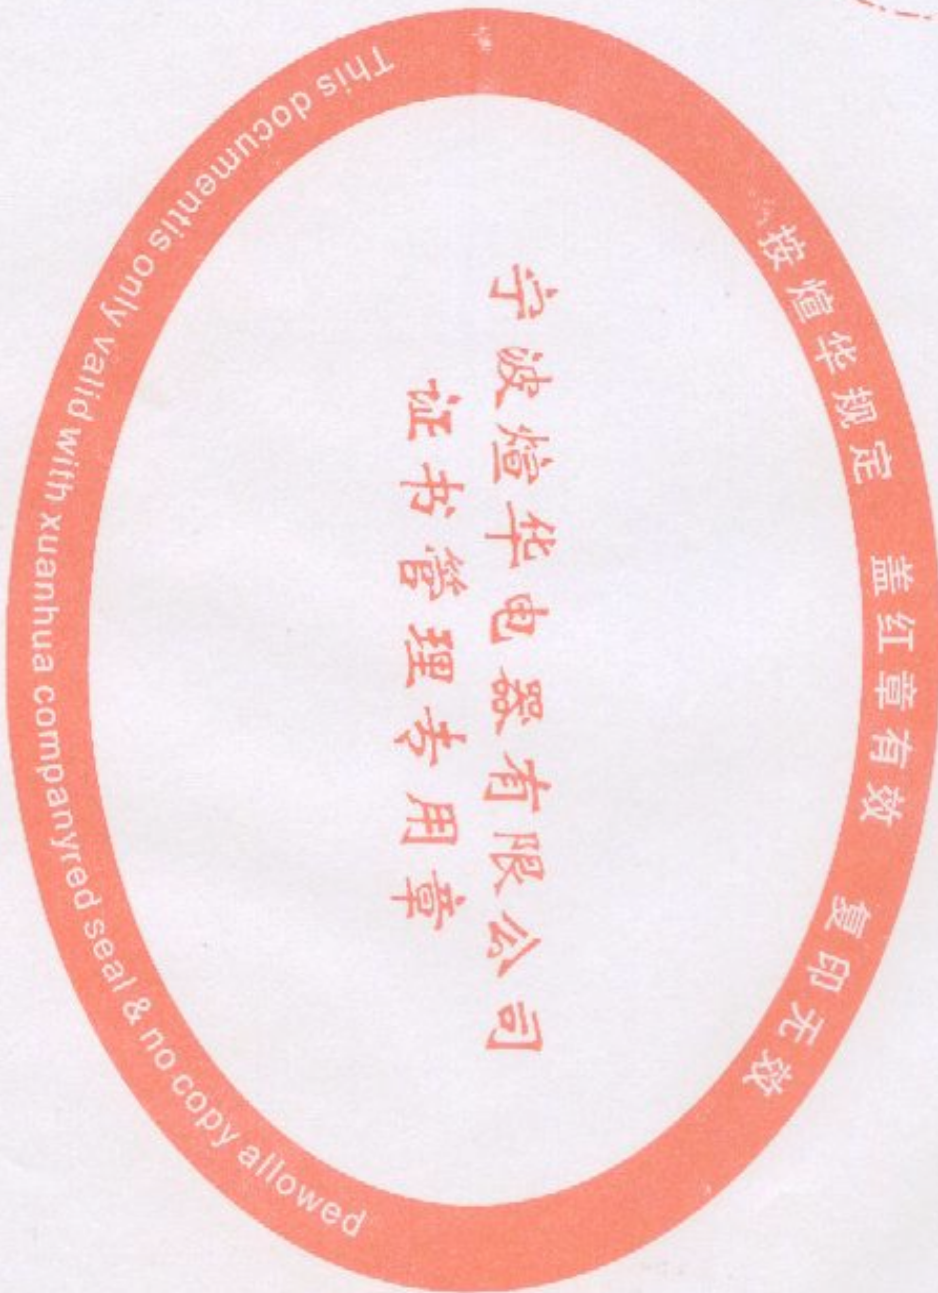 按煊华规定 盖红章有效 复印无效
宁波煊华电器有限公司
证书管理专用章
This documentis only valid with xuanhua companyred seal & no copy allowed